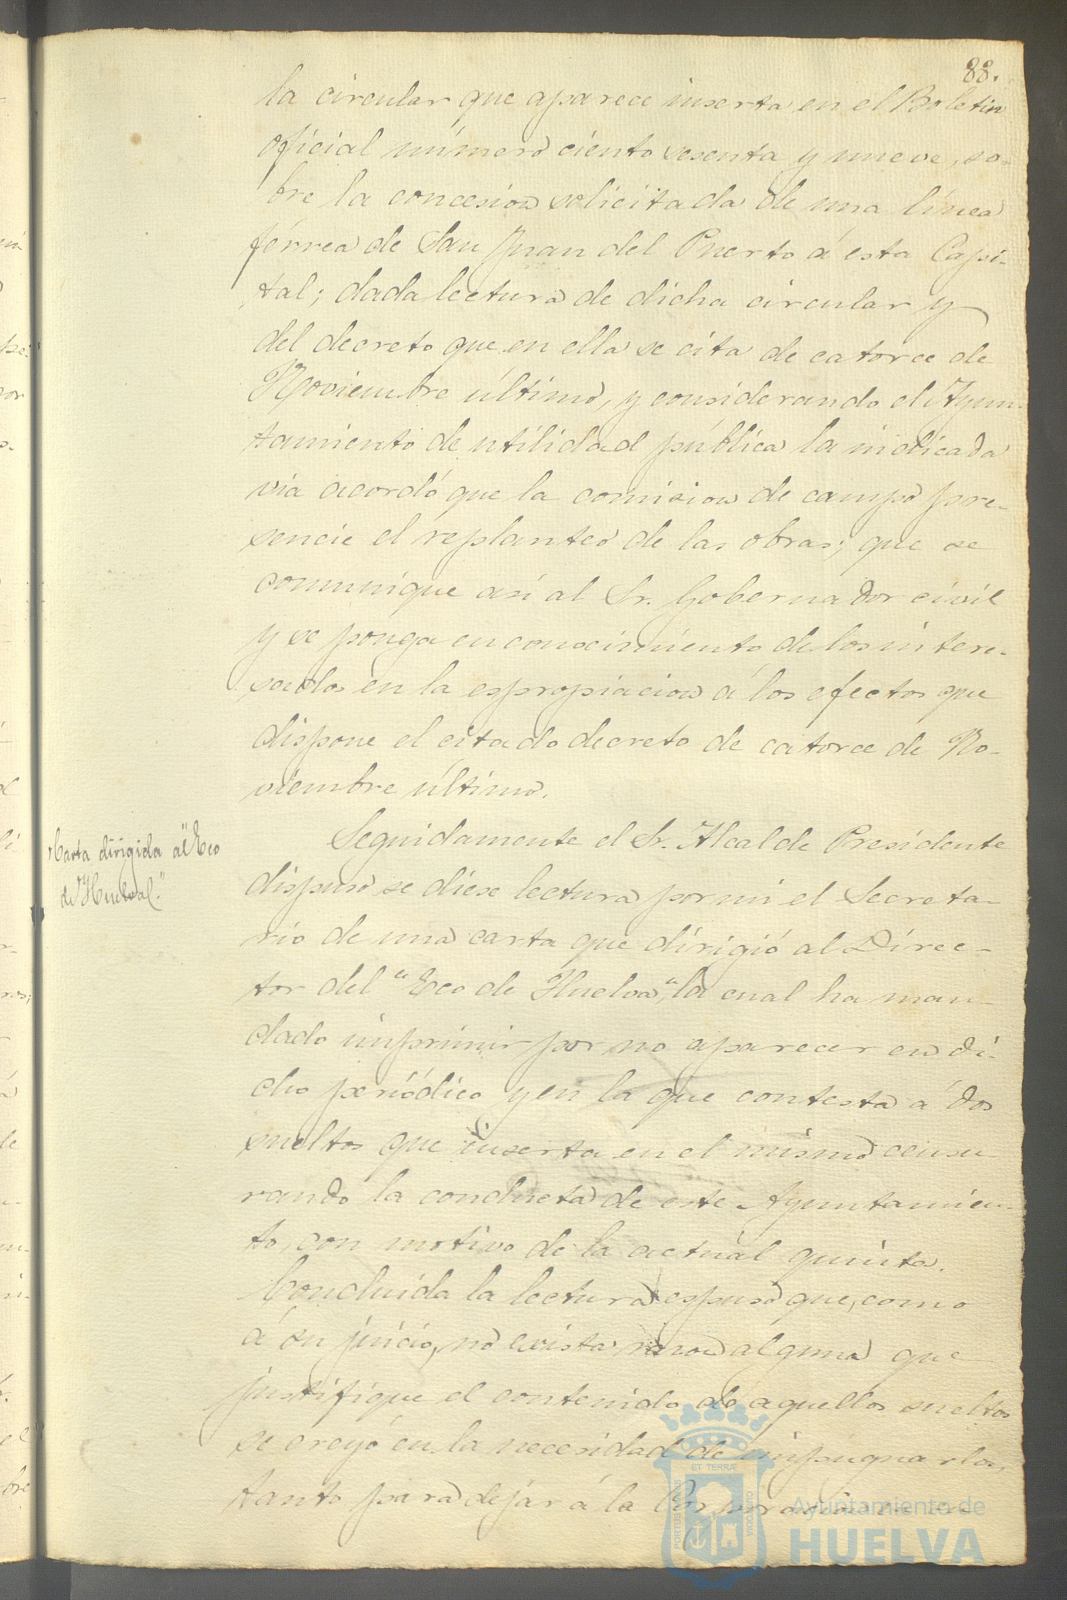 88.
la circular que aparece inserta en el Boletin
oficial número ciento sesenta y nueve, so-
bre la concesion solicitada de una línea
férrea de San Juan del Puerto á esta Capi-
tal; dada lectura de dicha circular y
del decreto que en ella se cita de catorce de
Noviembre último, y considerando el Ayun-
tamiento de utilidad pública la indicada
via acordó que la comision de campo pre-
sencie el replanteo de las obras; que se
comunique así al Sr. Gobernador civil
y se ponga en conocimiento de los intere-
sados en la espropiacion á los efectos que
dispone el citado decreto de catorce de No-
viembre último.
Carta dirigida al "Eco
de Huelva."
Seguidamente el Sr. Alcalde Presidente
dispuso se diese lectura por mi el Secreta-
rio de una carta que dirigió al Direc-
tor del "Eco de Huelva", la cual ha man-
dado imprimir por no aparecer en di-
cho periódico y en la que contesta á dos
sueltos que inserta en el mismo censu
rando la conducta de este Ayuntamien-
to, con motivo de la actual quinta.
Concluida la lectura espuso que, como
á su juicio, no exista razon alguna que
justifique el contenido de aquellos sueltos
se creyó en la necesidad de impugnarlos,
tanto para dejar á la Corporacion en
PORTUS MARIS ET TERRÆ CUSTODIA
Ayuntamiento de
HUELVA